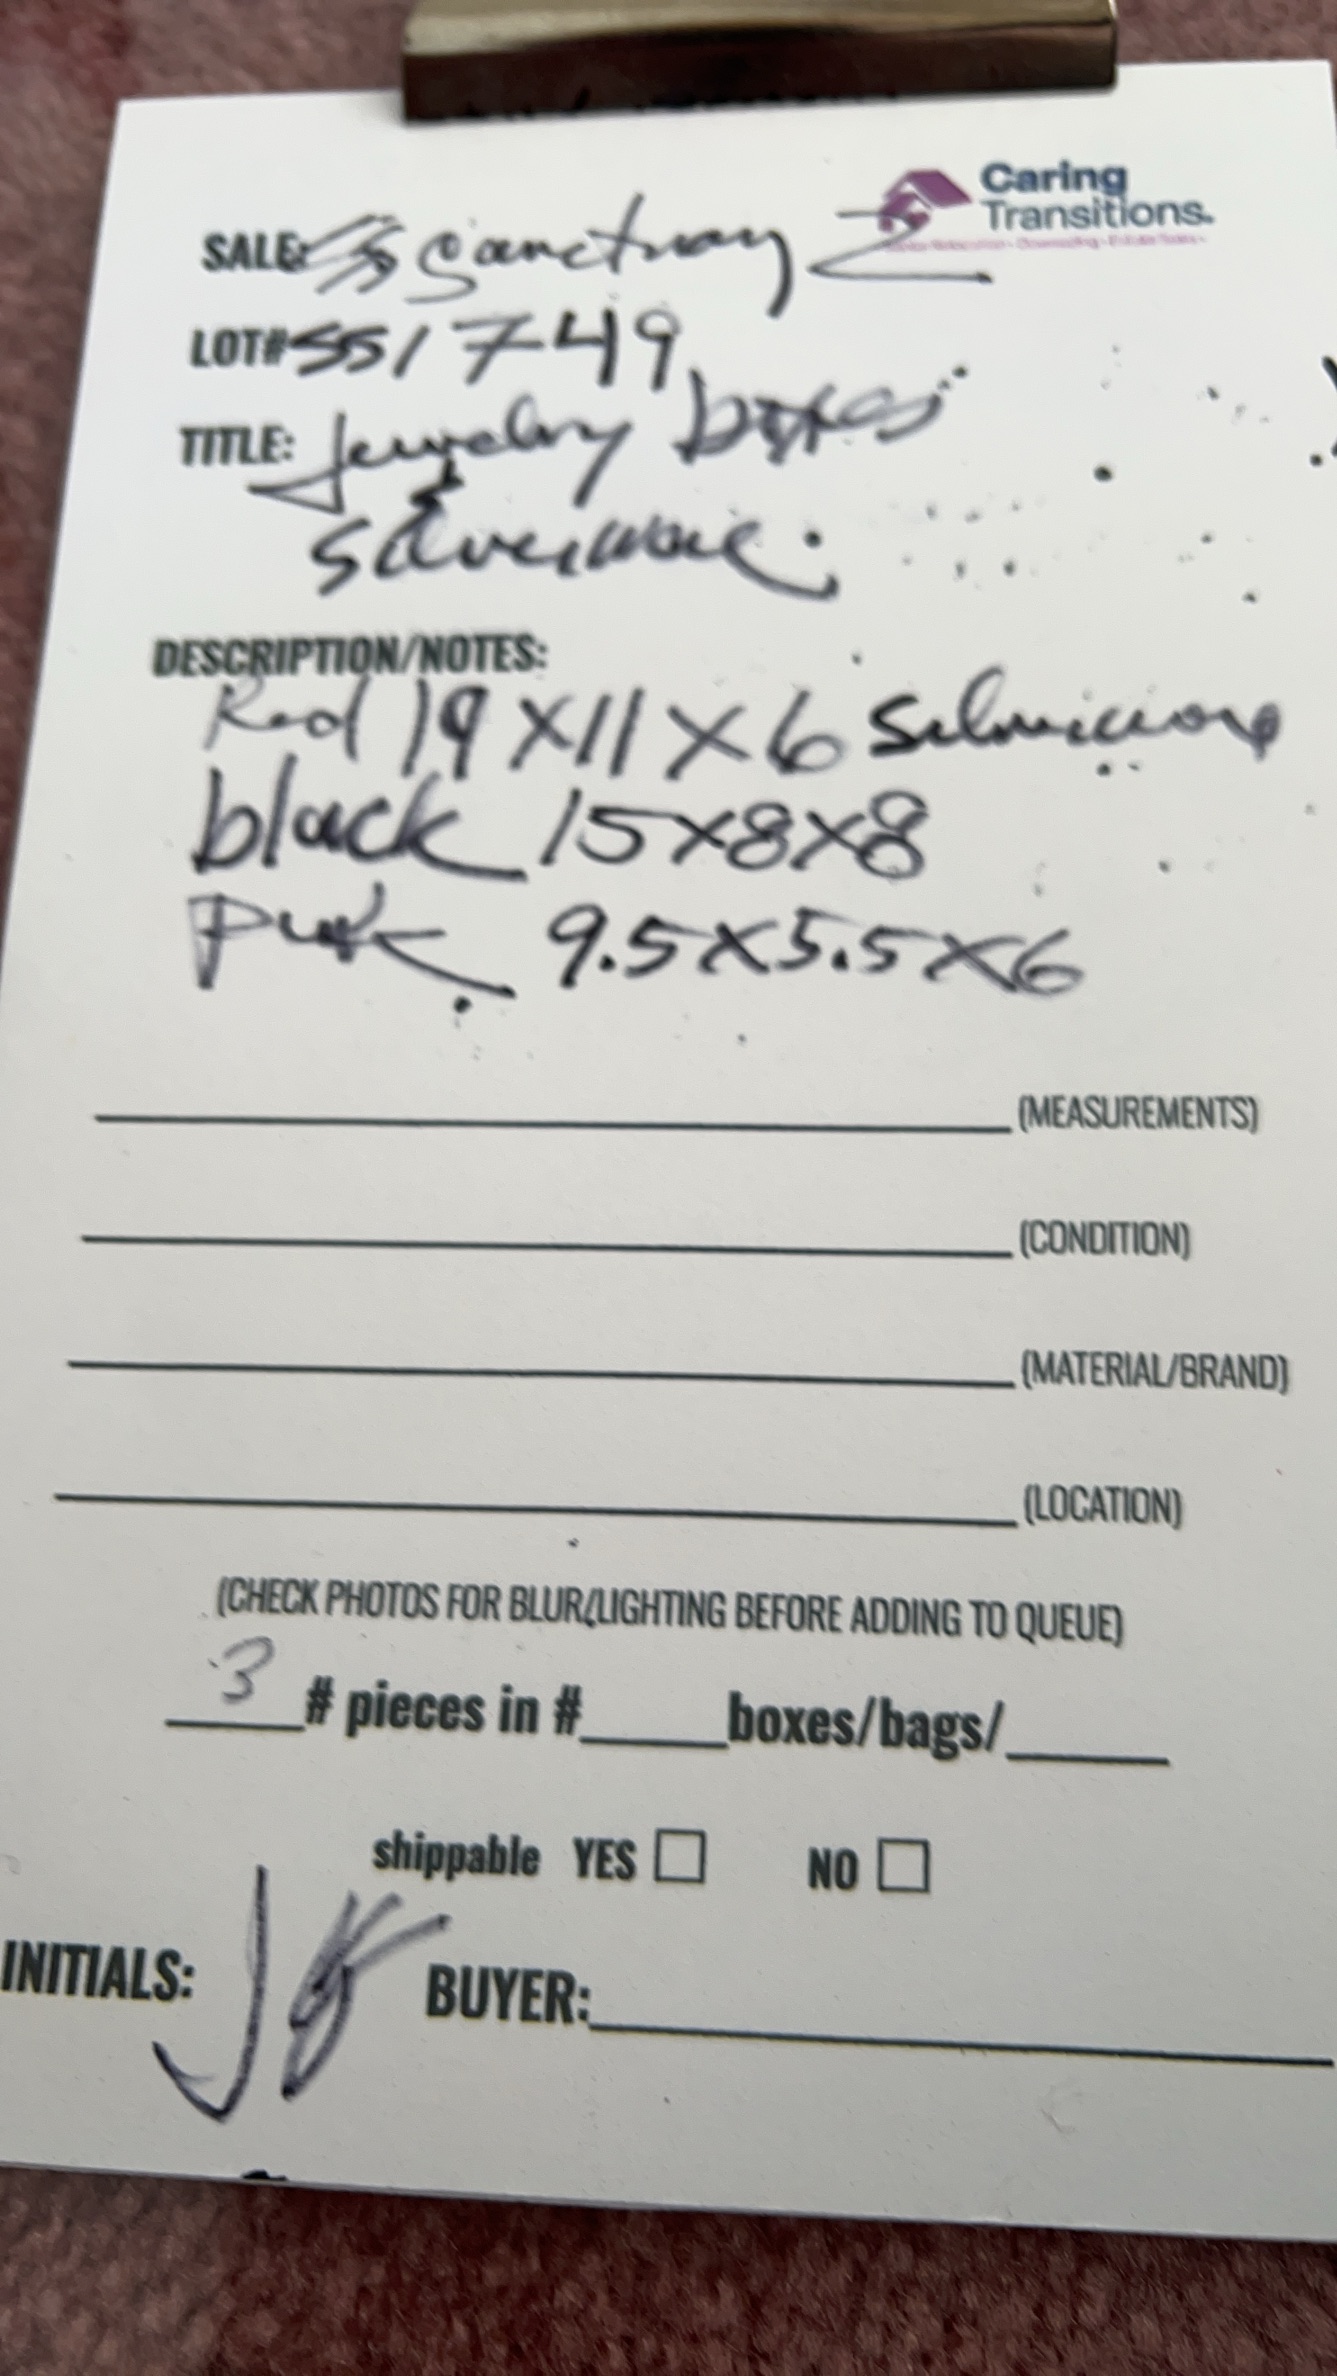 Caring
Transitions.
SALE: Sanctuary 2
LOT# SS1749
TITLE: Jewelry boxes
& Silverware
DESCRIPTION/NOTES:
Red 19x11x6 Silverware
black 15x8x8
Pink 9.5x5.5x6
(MEASUREMENTS)
(CONDITION)
(MATERIAL/BRAND)
(LOCATION)
(CHECK PHOTOS FOR BLUR/LIGHTING BEFORE ADDING TO QUEUE)
3 # pieces in # boxes/bags/
shippable YES NO
INITIALS: BUYER: